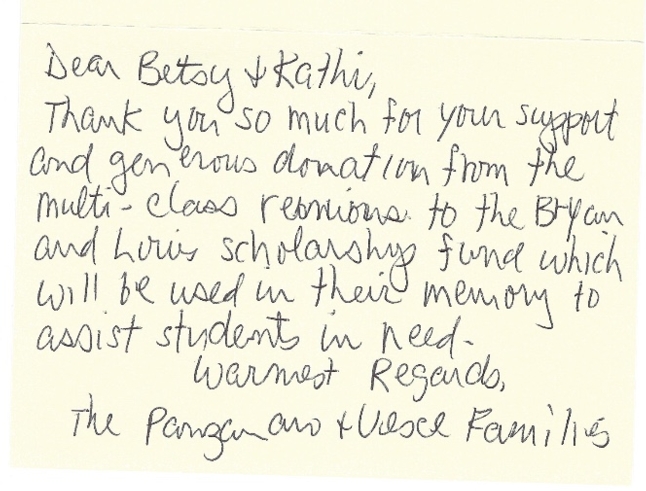 Dear Betsy & Kathi,
Thank you so much for your support
and generous donation from the
multi-class reunions to the Bryan
and Louis scholarship fund which
will be used in their memory to
assist students in need.
Warmest Regards,
The & Families